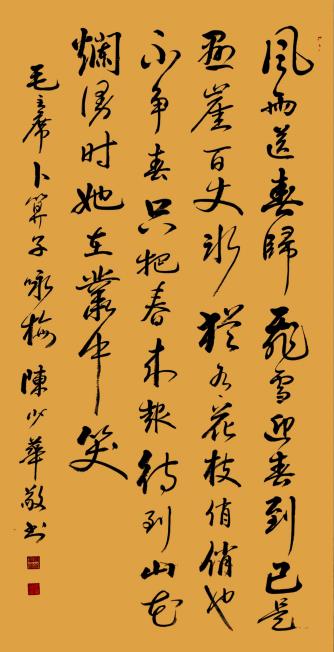 風雨送春歸飛雪迎春到已是
悬崖百丈冰猶有花枝俏俏也
不争春只把春来報待到山花
爛漫时她在叢中笑
毛主席卜算子咏梅陳少華敬书